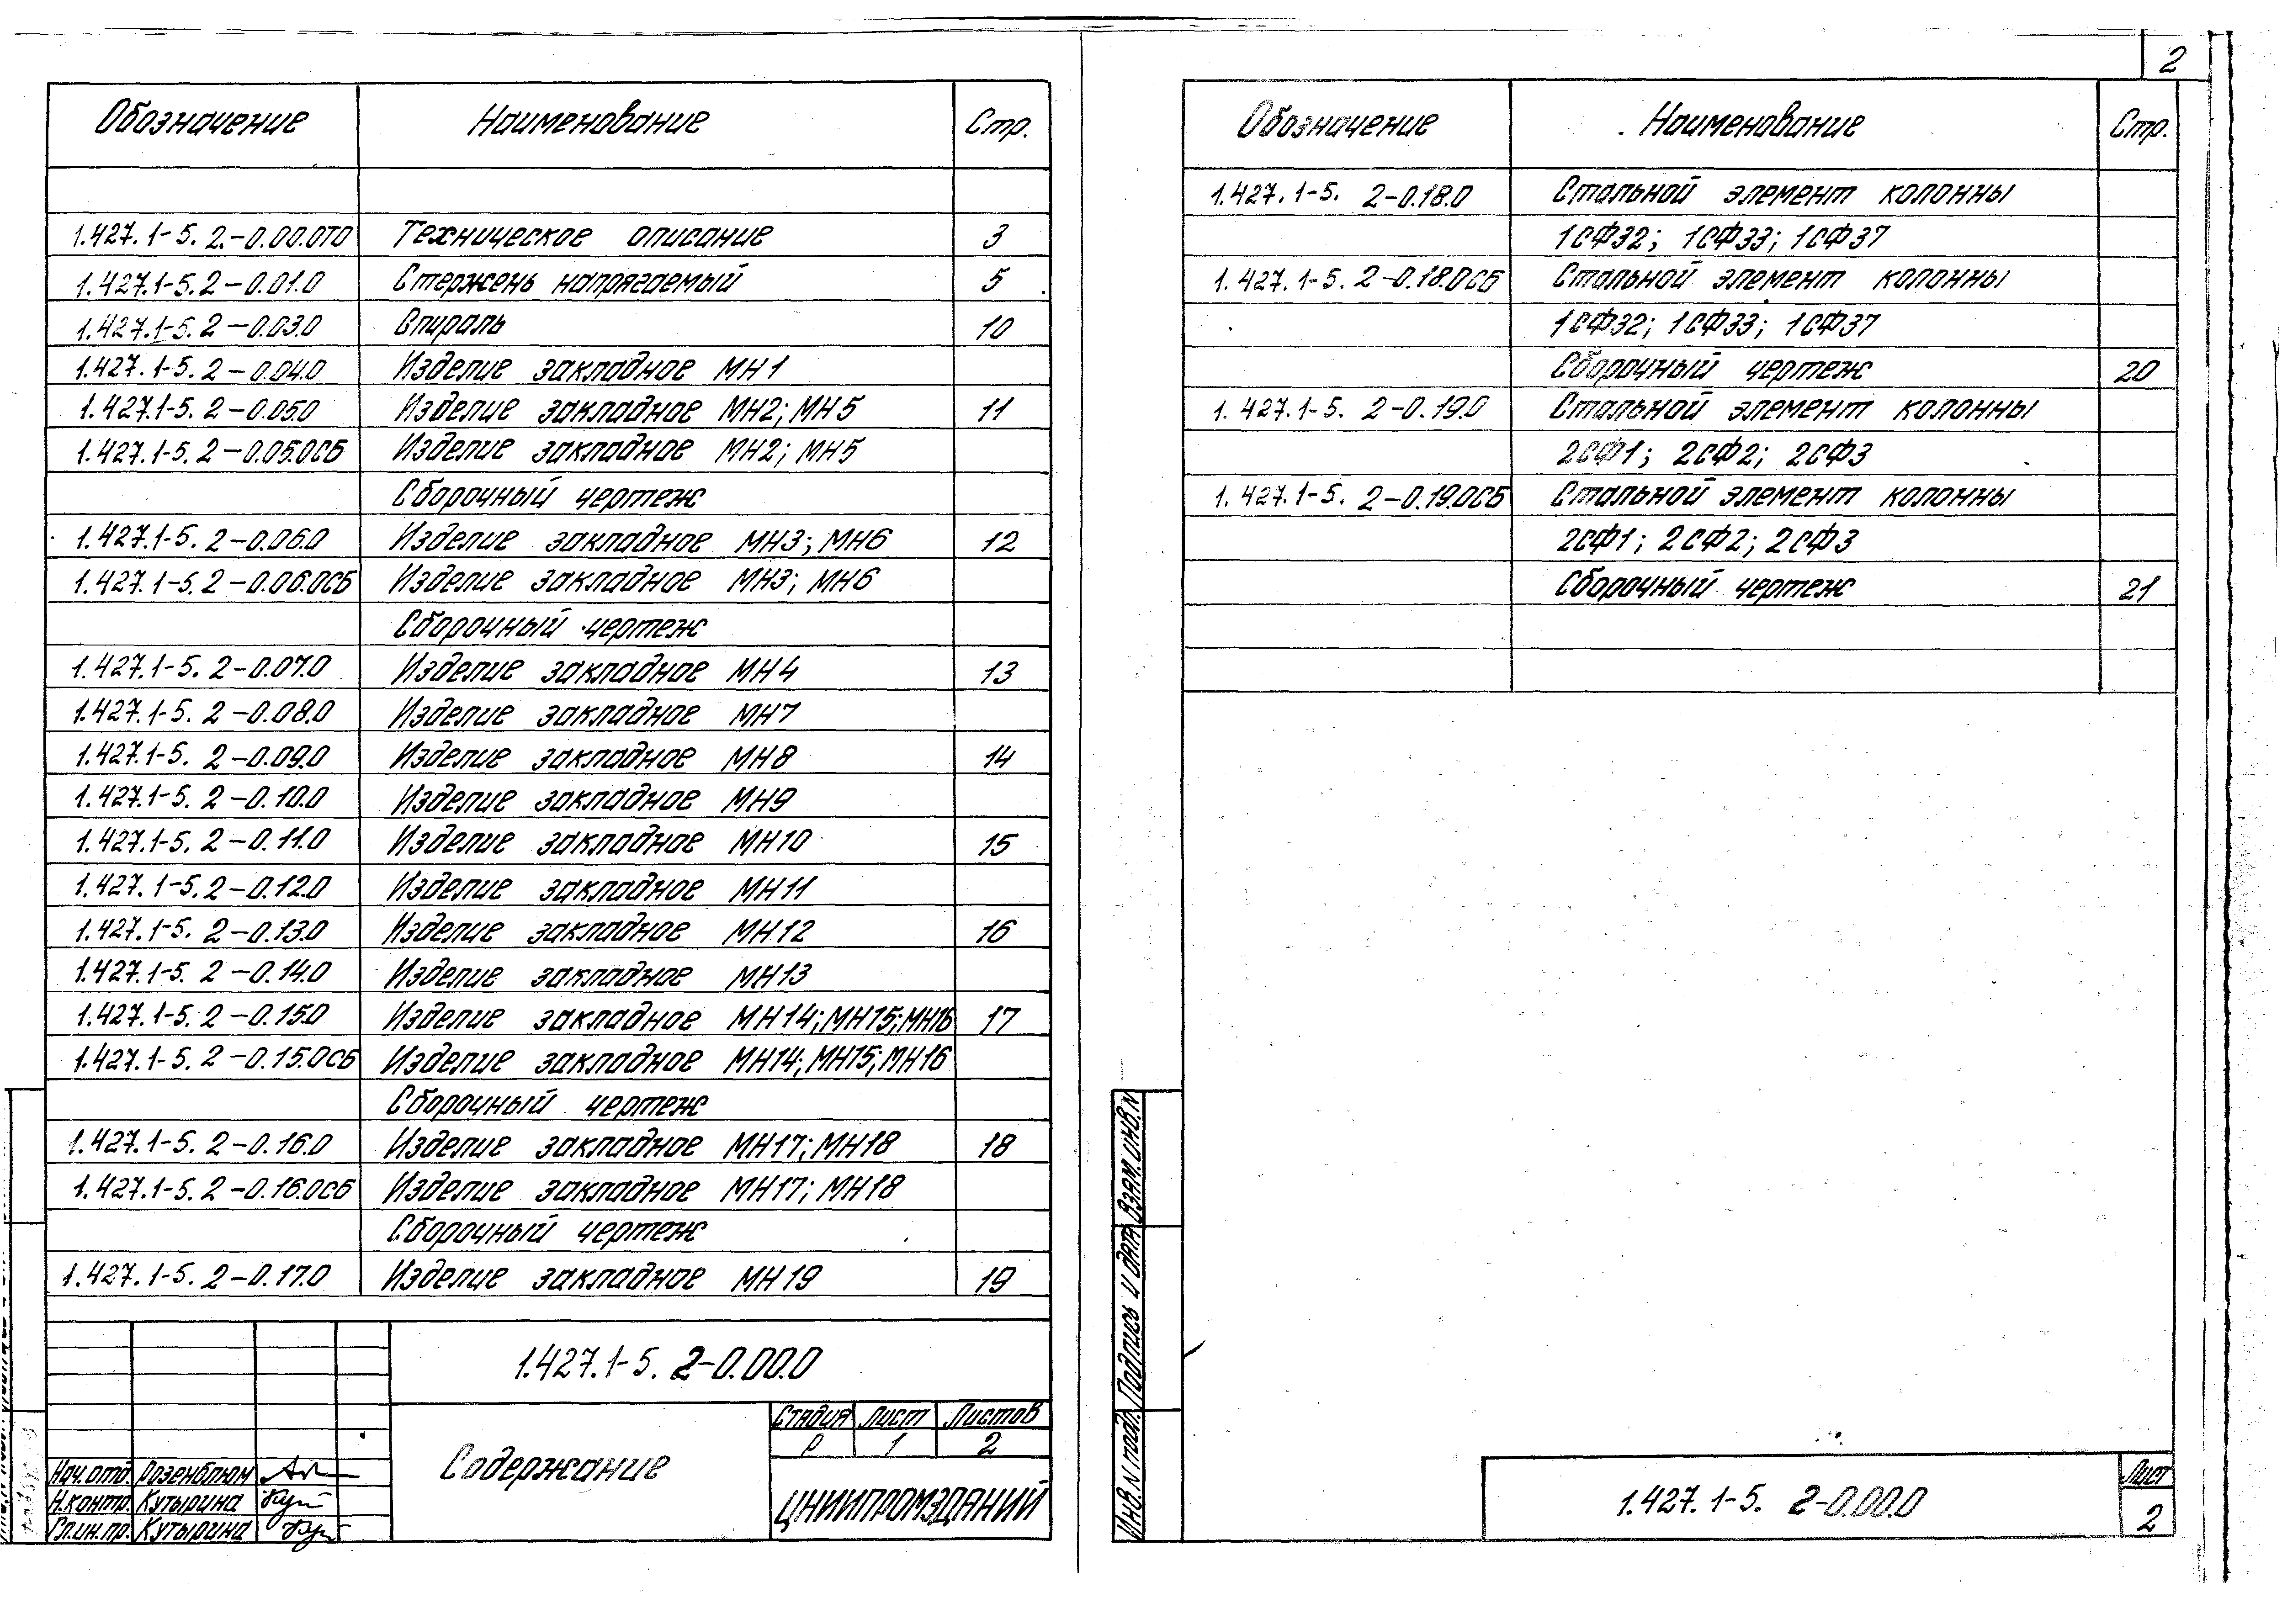 2
Обозначение Наименование Стр.
1.427.1-5.2.-0.00.0ТО Техническое описание 3
1.427.1-5.2-0.01.0 Стержень напрягаемый 5
1.427.1-5.2-0.03.0 Спираль 10
1.427.1-5.2-0.04.0 Изделие закладное МН1
1.427.1-5.2-0.05.0 Изделие закладное МН2; МН5 11
1.427.1-5.2-0.05.0СБ Изделие закладное МН2; МН5
Сборочный чертеж
1.427.1-5.2-0.06.0 Изделие закладное МН3; МН6 12
1.427.1-5.2-0.06.0СБ Изделие закладное МН3; МН6
Сборочный чертеж
1.427.1-5.2-0.07.0 Изделие закладное МН4 13
1.427.1-5.2-0.08.0 Изделие закладное МН7
1.427.1-5.2-0.09.0 Изделие закладное МН8 14
1.427.1-5.2-0.10.0 Изделие закладное МН9
1.427.1-5.2-0.11.0 Изделие закладное МН10 15
1.427.1-5.2-0.12.0 Изделие закладное МН11
1.427.1-5.2-0.13.0 Изделие закладное МН12 16
1.427.1-5.2-0.14.0 Изделие закладное МН13
1.427.1-5.2-0.15.0 Изделие закладное МН14; МН15; МН16 17
1.427.1-5.2-0.15.0СБ Изделие закладное МН14; МН15; МН16
Сборочный чертеж
1.427.1-5.2-0.16.0 Изделие закладное МН17; МН18 18
1.427.1-5.2-0.16.0СБ Изделие закладное МН17; МН18
Сборочный чертеж
1.427.1-5.2-0.17.0 Изделие закладное МН19 19
1.427.1-5.2-0.00.0
Содержание
Стадия Лист Листов
Р 1 2
ЦНИИПРОМЗДАНИЙ
Нач.отд. Розенблюм
Н.контр. Кутырина
Гл.ин.пр. Кутырина
Обозначение Наименование Стр.
1.427.1-5.2-0.18.0 Стальной элемент колонны
1СФ32; 1СФ33; 1СФ37
1.427.1-5.2-0.18.0СБ Стальной элемент колонны
1СФ32; 1СФ33; 1СФ37
Сборочный чертеж 20
1.427.1-5.2-0.19.0 Стальной элемент колонны
2СФ1; 2СФ2; 2СФ3
1.427.1-5.2-0.19.0СБ Стальной элемент колонны
2СФ1; 2СФ2; 2СФ3
Сборочный чертеж 21
Взам.инв.N
Подпись и дата
Инв.N подл.
1.427.1-5.2-0.00.0
Лист
2